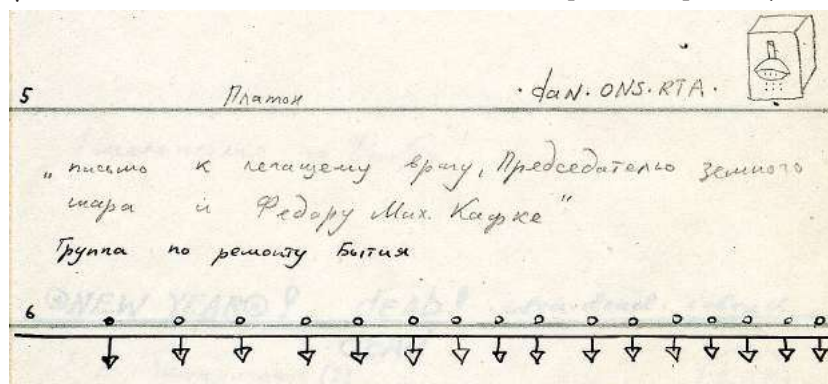 5 Платон · daN · ONS · RTA ·
„письмо к лечащему врачу, Председателю земного
шара и Федору Мих. Кафке"
Группа по ремонту Бытия
6